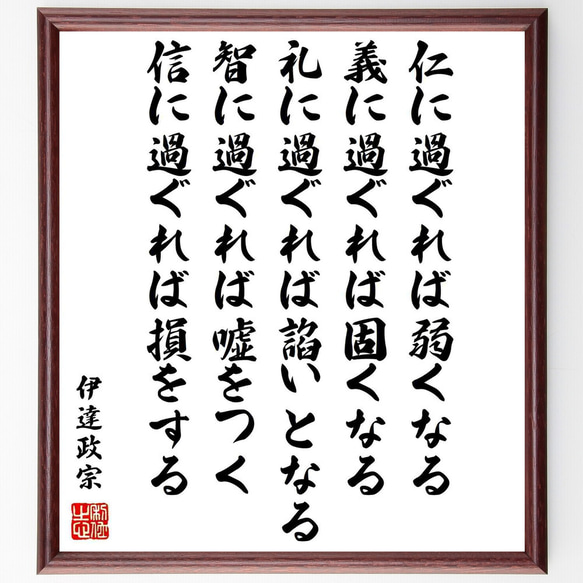 仁に過ぐれば弱くなる
義に過ぐれば固くなる
礼に過ぐれば諂いとなる
智に過ぐれば嘘をつく
信に過ぐれば損をする
伊達政宗